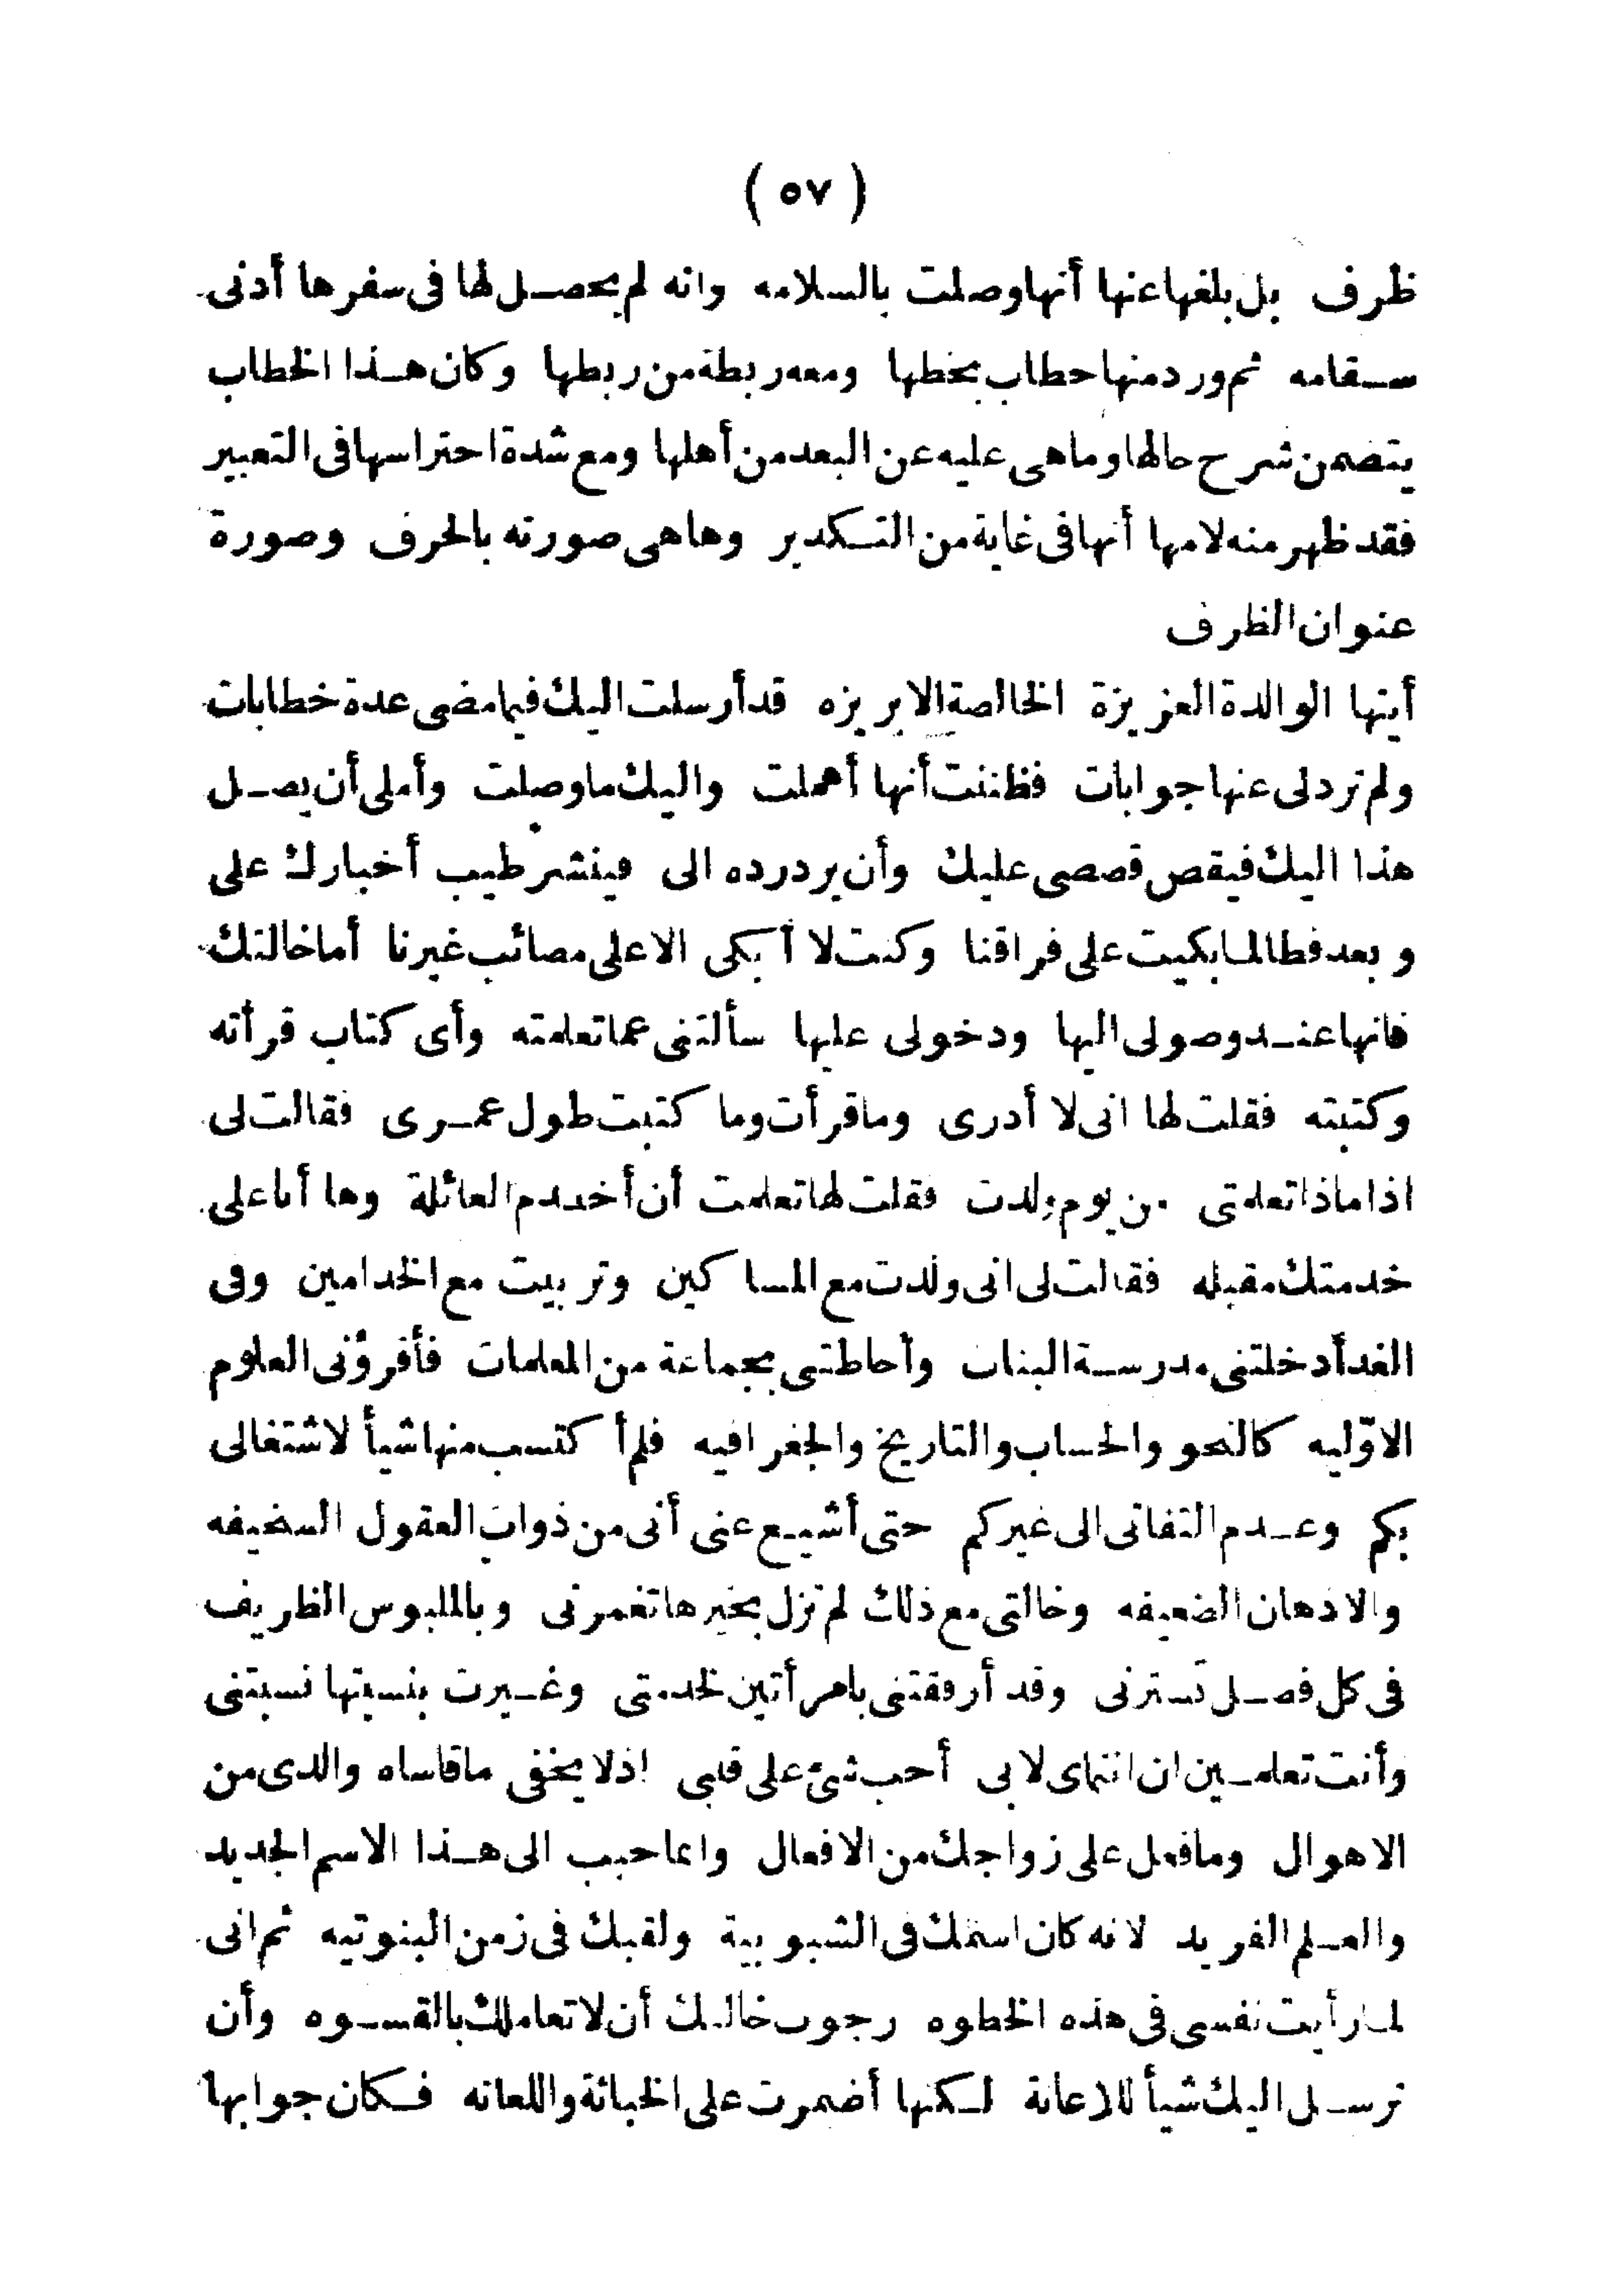 ( ٥٧ )
ظرف بل بلغها عنها أنها وصلت بالسلامه وانه لم يحصل لها فى سفرها أدنى
سقامه ثم ورد منها خطاب بخطها ومعه ربطة من ربطها وكان هذا الخطاب
يتضمن شرح حالها وما هى عليه عن البعد من أهلها ومع شدة احتراسها فى التعبير
فقد ظهر منه لامها أنها فى غاية من التكدير وها هى صورته بالحرف وصورة
عنوان الظرف
أيتها الوالدة العزيزة الخالصة الابريزه قد أرسلت اليك فيما مضى عدة خطابات
ولم ترد لى عنها جوابات فظننت أنها أهملت واليك ما وصلت وأملى أن يصل
هذا اليك فيقص قصصى عليك وأن يرد رده الى فينشر طيب أخبارك على
وبعد فطالما بكيت على فراقنا وكنت لا أبكى الا على مصائب غيرنا أما خالتك
فانها عند وصولى اليها ودخولى عليها سألتنى عما تعلمته وأى كتاب قرأته
وكتبته فقلت لها انى لا أدرى وما قرأت وما كتبت طول عمرى فقالت لى
اذا ماذا تعلمتى من يوم ولدت فقلت لها تعلمت أن أخدم العائلة وها أنا على
خدمتك مقبله فقالت لى انى ولدت مع المساكين وتربيت مع الخدامين وفى
الغد أدخلتنى مدرسة البنات وأحاطتنى بجماعة من المعلمات فأقرؤنى العلوم
الاوّليه كالنحو والحساب والتاريخ والجغرافيه فلم أكتسب منها شيأ لاشتغالى
بكم وعدم التفاتى الى غيركم حتى أشيع عنى أنى من ذوات العقول السخيفه
والاذهان الضعيفه وخالتى مع ذلك لم تزل بخيرها تغمرنى وبالملبوس الظريف
فى كل فصل تسترنى وقد أرفقتنى بامرأتين لخدمتى وغيرت بنسبتها نسبتى
وأنت تعلمين ان انتماى لابى أحب شئ على قلبى اذ لا يخفى ما قاساه والدى من
الاهوال وما فعل على زواجك من الافعال وانما حبب الى هذا الاسم الجديد
والعلم الفريد لانه كان اسمك فى الشبوبية ولقبك فى زمن البنوتيه ثم انى
لما رأيت نفسى فى هذه الخطوه رجوت خالتك أن لا تعاملك بالقسوه وأن
ترسل اليك شيأ للاعانة لكنها أضمرت على الخيانة واللعانه فكان جوابها